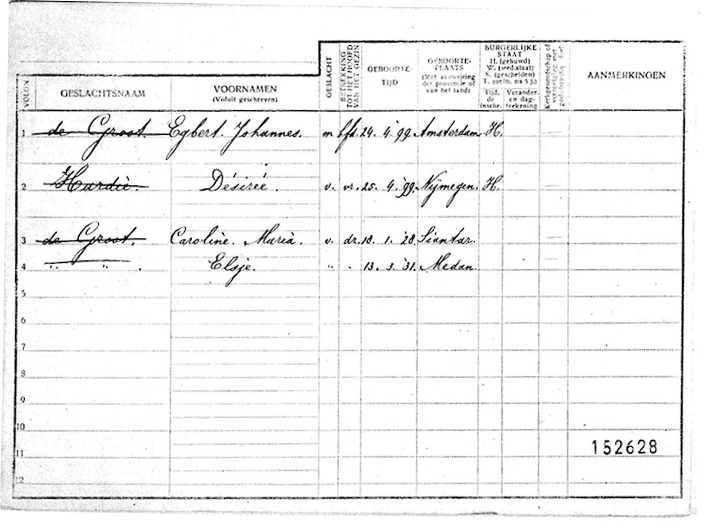 VOLGN. GESLACHTSNAAM VOORNAMEN (Voluit geschreven) GESLACHT BETREKKING TOT HET HOOFD VAN HET GEZIN GEBOORTE-TIJD GEBOORTE-PLAATS (Met aanwijzing der provincie of van het land) BURGERLIJKE STAAT H. (gehuwd) W. (wed.staat) S. (gescheiden) Tijd. de insche. Verander. en dag-teekening Kerkgenootschap of AANMERKINGEN
1 de Groot Egbert Johannes. m hfd 24. 4. 99. Amsterdam H.
2 Hardie. Désirée. v. vr. 25. 4. 99. Nijmegen. H.
3 de Groot. Caroline. Maria. v. dr. 18. 1. 28. Siantar.
4 " " . Elsje. " " 13. 3. 31. Medan.
5
6
7
8
9
10
11 152628
12